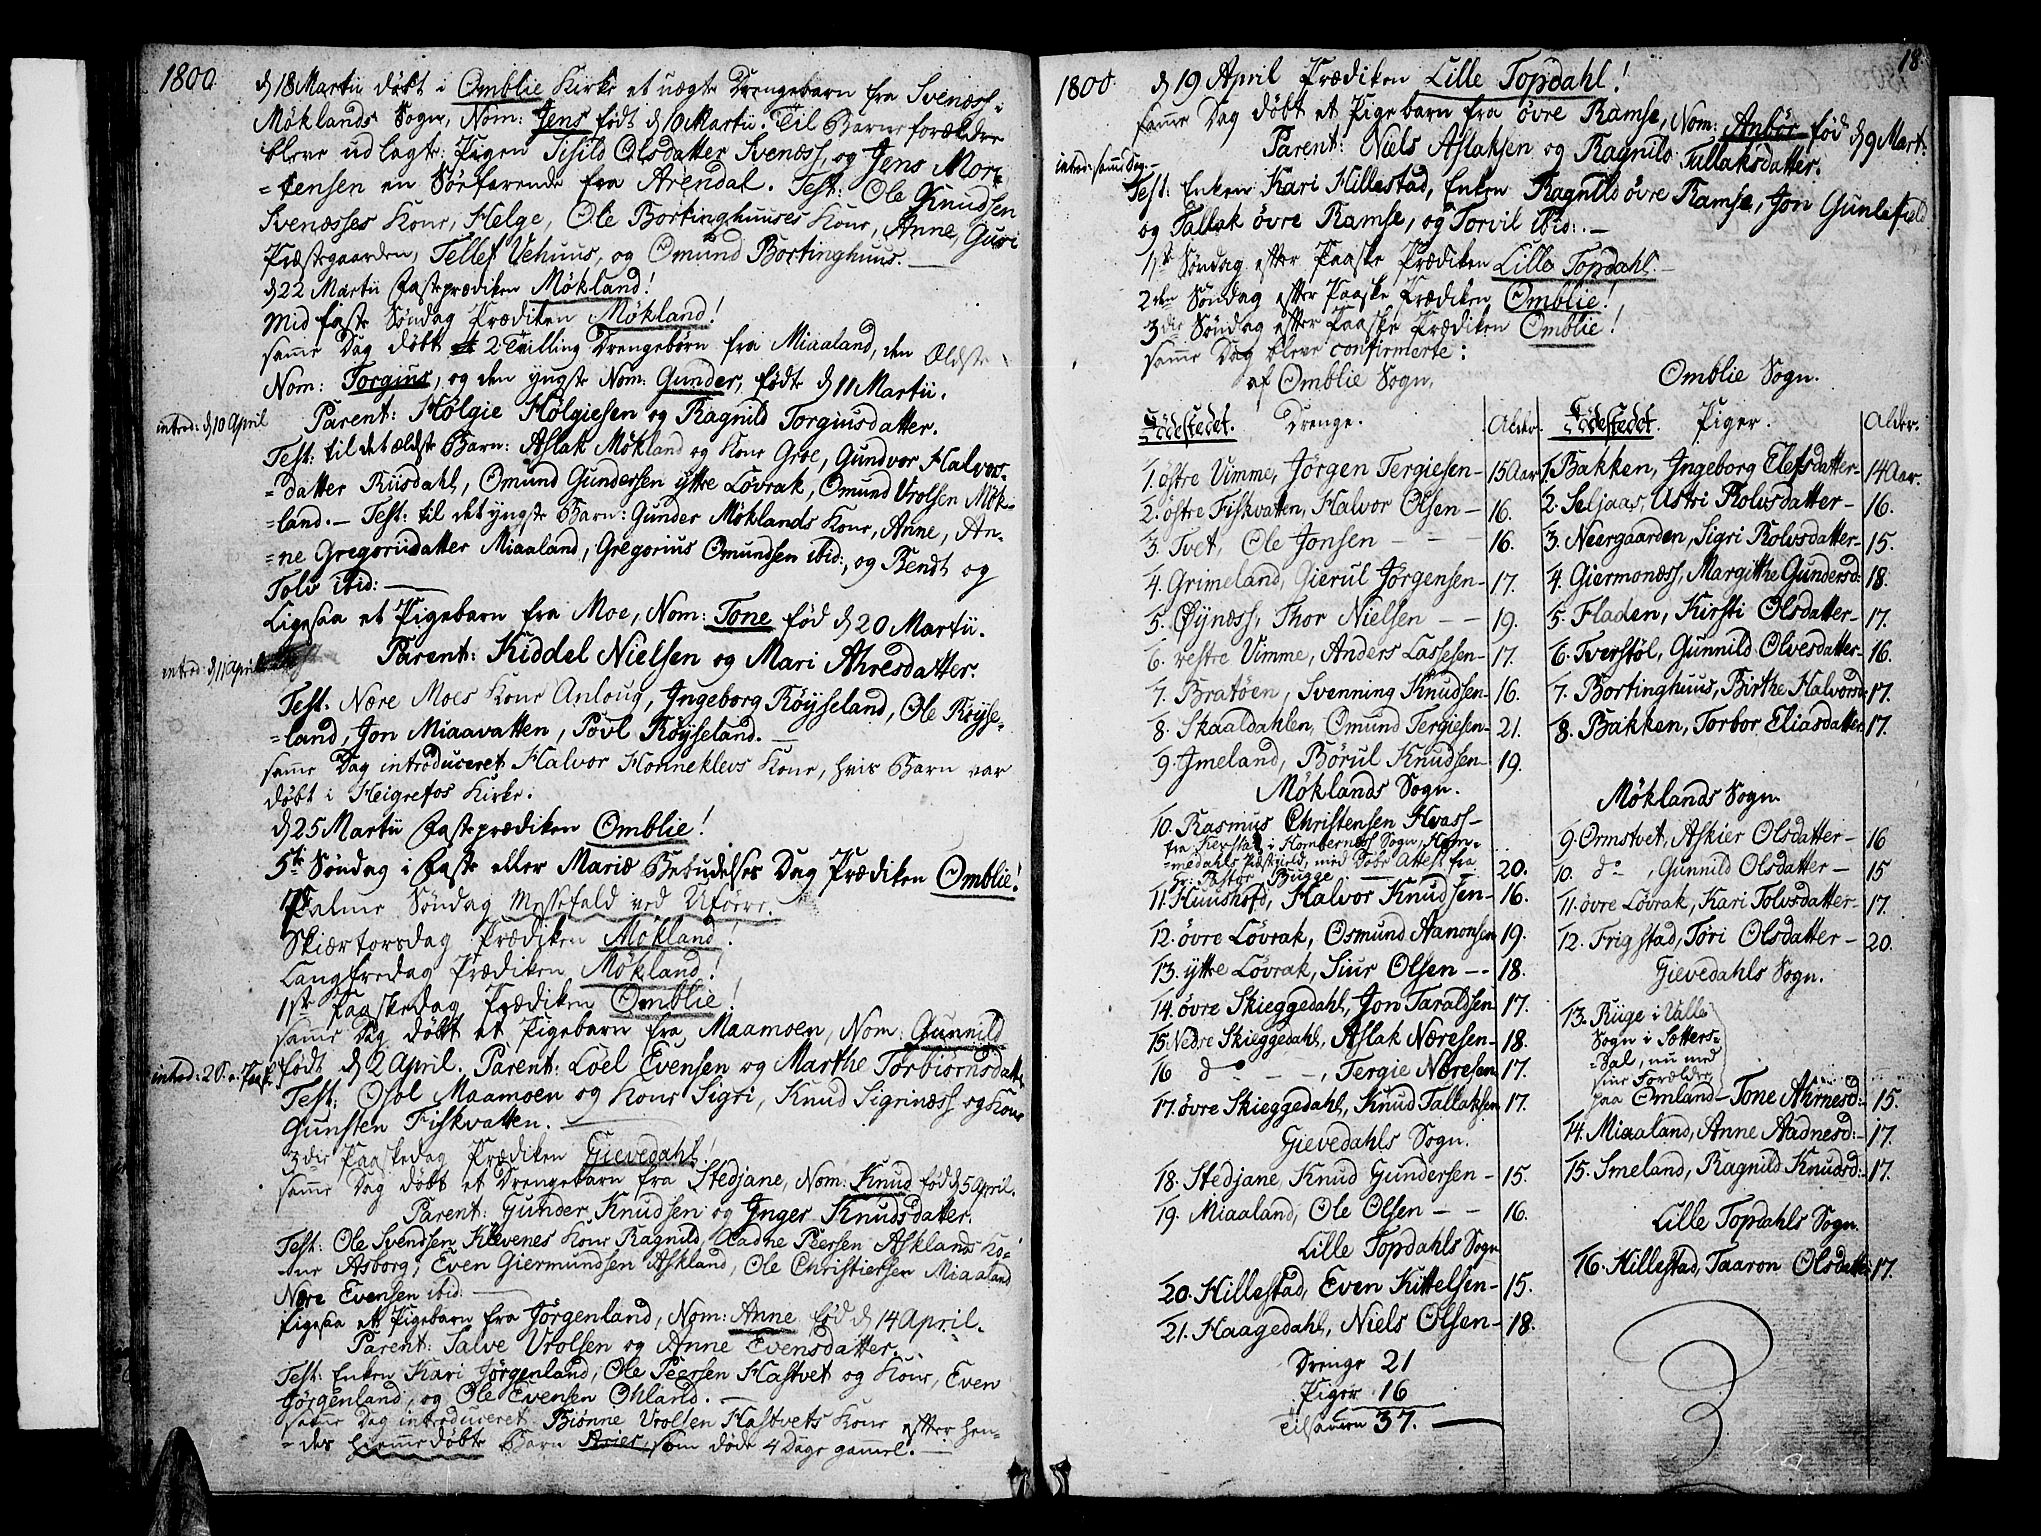 1800
d 18 Martii döbt i Omblie Kirke et uægte Drengebarn fra Svenæss i
Möklands Sogn, Nom: Jens född d 10 Martii. Til Barne forældre
bleve udlagte: Pigen Sisild Olsdatter Svenæss, og Jens Mor-
=tensen en Söefarende fra Arendal. Test: Ole Knudsen
Svenæsses Kone, Helge, Ole Bortinghuuses Kone, Anne, Guri
Præstegaarden, Tellef Vehuus, og Omund Bortinghuus.
d 22 Martii Fasteprædiken Mökland!
Mid faste Söndag Prædiken Mökland!
samme Dag döbt 2 Tvilling Drengebörn fra Miaaland, den Ældste
Nom: Torgius, og den yngste Nom: Gunder, födte d 11 Martii.
introd: d 10 April
Parent: Hölgie Hölgiesen og Ragnild Torgiusdatter.
Test: til det ældste Barn: Aslak Mökland og Kone Groe, Gundvor Halvors-
=datter Riisdahl, Omund Gundersen ytre Lövrak, Omund Vrolsen Mök-
=land. - Test: til det yngste Barn: Gunder Möklands Kone, Anne, An-
=ne Gregoriidatter Miaaland, Gregorius Omundsen ibid:, og Bendt og
Tolv ibid:
Ligesaa et Pigebarn fra Moe, Nom: Tone föd d 20 Martii.
introd: d 11 April
Parent: Kiddel Nielsen og Mari Ahresdatter.
Test: Nære Moes Kone Anloug, Jngeborg Röyseland, Ole Röyse-
=land, Jon Miaavatten, Povl Röyseland.
samme Dag introduceret Halvor Honneklevs Kone, hvis Barn var
döbt i Heigrefos Kirke.
d 25 Martii Fasteprædiken Omblie!
5te Söndag i Faste eller Mariæ Bebudelses Dag Prædiken Omblie!
Palme Söndag Messefald ved Uföere.
Skiærtorsdag Prædiken Mökland!
Langfredag Prædiken Mökland!
1ste Paaskedag Prædiken Omblie!
samme Dag döbt et Pigebarn fra Maamoen, Nom: Gunnild
introd: 2 S: e: Paask:
födt d 2 April. Parent: Loel Evensen og Marthe Torbiörnsdatter
Test: Osol Maamoen og Kone Sigri, Knud Sigrinæss og Kone
Gunsten Fiskvatten.
3die Paaskedag Prædiken Gievedahl!
samme Dag döbt et Drengebarn fra Stedjane, Nom: Knud föd d 5 April.
Parent: Gunder Knudsen og Jnger Knudsdatter.
Test: Ole Svendsen Klevenes Kone Ragnild, Aadne Peersen Asklands Ko-
=ne Asborg, Even Giermundsen Askland, Ole Christiersen Miaaland
Nære Evensen ibid:
Ligesaa et Pigebarn fra Jörgenland, Nom: Anne föd d 14 April.
Parent: Salve Vrolsen og Anne Evensdatter.
Test: Enken Kari Jörgenland, Ole Peersen Hastvet og Kone, Even
Jörgenland, og Ole Evensen Ohland.
samme Dag introduceret Biönne Vrolsen Hastvets Kone efter hen-
=des hiemmedöbte Barn Asier, som döde 4 Dage gammel.
18.
1800.
d 19 April Prædiken Lille Topdahl!
samme Dag döbt et Pigebarn fra övre Ramse, Nom: Anbör föd d 9 Mart:
Parent: Niels Aslaksen og Ragnild Tallaksdatter.
introd: samme Dag.
Test: Enken Kari Hillestad, Enken Ragnild övre Ramse, Jon Gunlefield
og Tallak övre Ramse, og Torvil ibid:
1ste Söndag efter Paaske Prædiken Lille Topdahl.
2den Söndag efter Paaske Prædiken Omblie!
3die Söndag efter Paaske Prædiken Omblie!
samme Dag bleve confirmerte:
af Omblie Sogn.
Födestedet. Drenge. Alder.
1. östre Vimme, Jörgen Tergiesen - 15 Aar
2. östre Fiskvatten, Halvor Olsen - 16.
3. Tvet, Ole Jonsen - 16.
4. Grimeland, Gierul Jörgensen - 17.
5. Öynæss, Thor Nielsen - 19.
6. vestre Vimme, Anders Lassesen - 17.
7. Bratöen, Svenning Knudsen - 16.
8. Skaaldahlen, Omund Tergiesen - 21.
9. Jmeland, Börul Knudsen - 19.
Möklands Sogn.
10. Rasmus Christensen Hvass -
fra Kierstad i Hombernæss Sogn, Hom-
=medahls Præstgield, med Döbe Attest fra
Hr: Pastor Bugge - 20.
11. Huushofd, Halvor Knudsen - 16.
12. övre Lövrak, Osmund Aanonsen 19.
13. ytre Lövrak, Siur Olsen - 18.
14. övre Skieggedahl, Jon Taraldsen 17.
15. Nedre Skieggedahl, Aslak Næresen - 18.
16 d° - , Tergie Næresen 17.
17. övre Skieggedahl, Knud Tallaksen 17.
Gievedahls Sogn.
18. Stedjane, Knud Gundersen - 15.
19. Miaaland, Ole Olsen - 16.
Lille Topdahls Sogn
20. Hillestad, Even Kittelsen - 15.
21. Haagedahl, Niels Olsen - 18.
Drenge 21
Piger 16
Tilsamen 37.
Omblie Sogn.
Födestedet. Piger. Alder.
1. Bakken, Jngeborg Elefsdatter - 14 Aar.
2. Seljaas, Astri Rolvsdatter - 16.
3. Neergaarden, Sigri Rolvsdatter - 15.
4. Giermonæss, Margithe Gundersd: 18.
5. Fladen, Kirsti Olsdatter - 17.
6. Tverstöl, Gunnild Olvesdatter - 16.
7. Bortinghuus, Birthe Halvorsd: 17.
8. Bakken, Torbor Eliasdatter 17.
Möklands Sogn.
9. Ormstvet, Askier Olsdatter - 16
10. d° - , Gunnild Olsdatter - 15
11. övre Lövrak, Kari Tolvsdatter - 17.
12. Frigstad, Töri Olsdatter - 20.
Gievedahls Sogn.
13. Rüge i Valle
Sogn i Sætters-
=Dal, nu med
sine Forældre
paa Omland - Tone Ahrnesd: - 15.
14. Miaaland, Anne Aadnesd: - 17.
15. Smeland, Ragnild Knudsd: - 17.
Lille Topdahls Sogn.
16. Hillestad, Taaron Olsdatter 17.